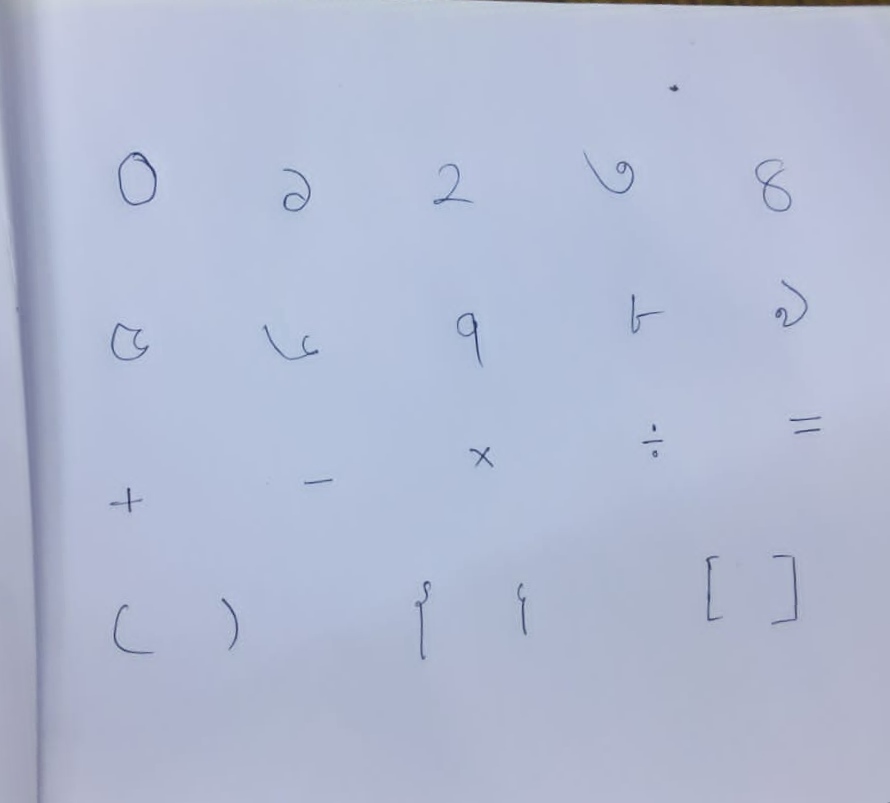 ০ ১ ২ ৩ ৪
৫ ৬ ৭ ৮ ৯
+ - × ÷ =
( ) { } [ ]